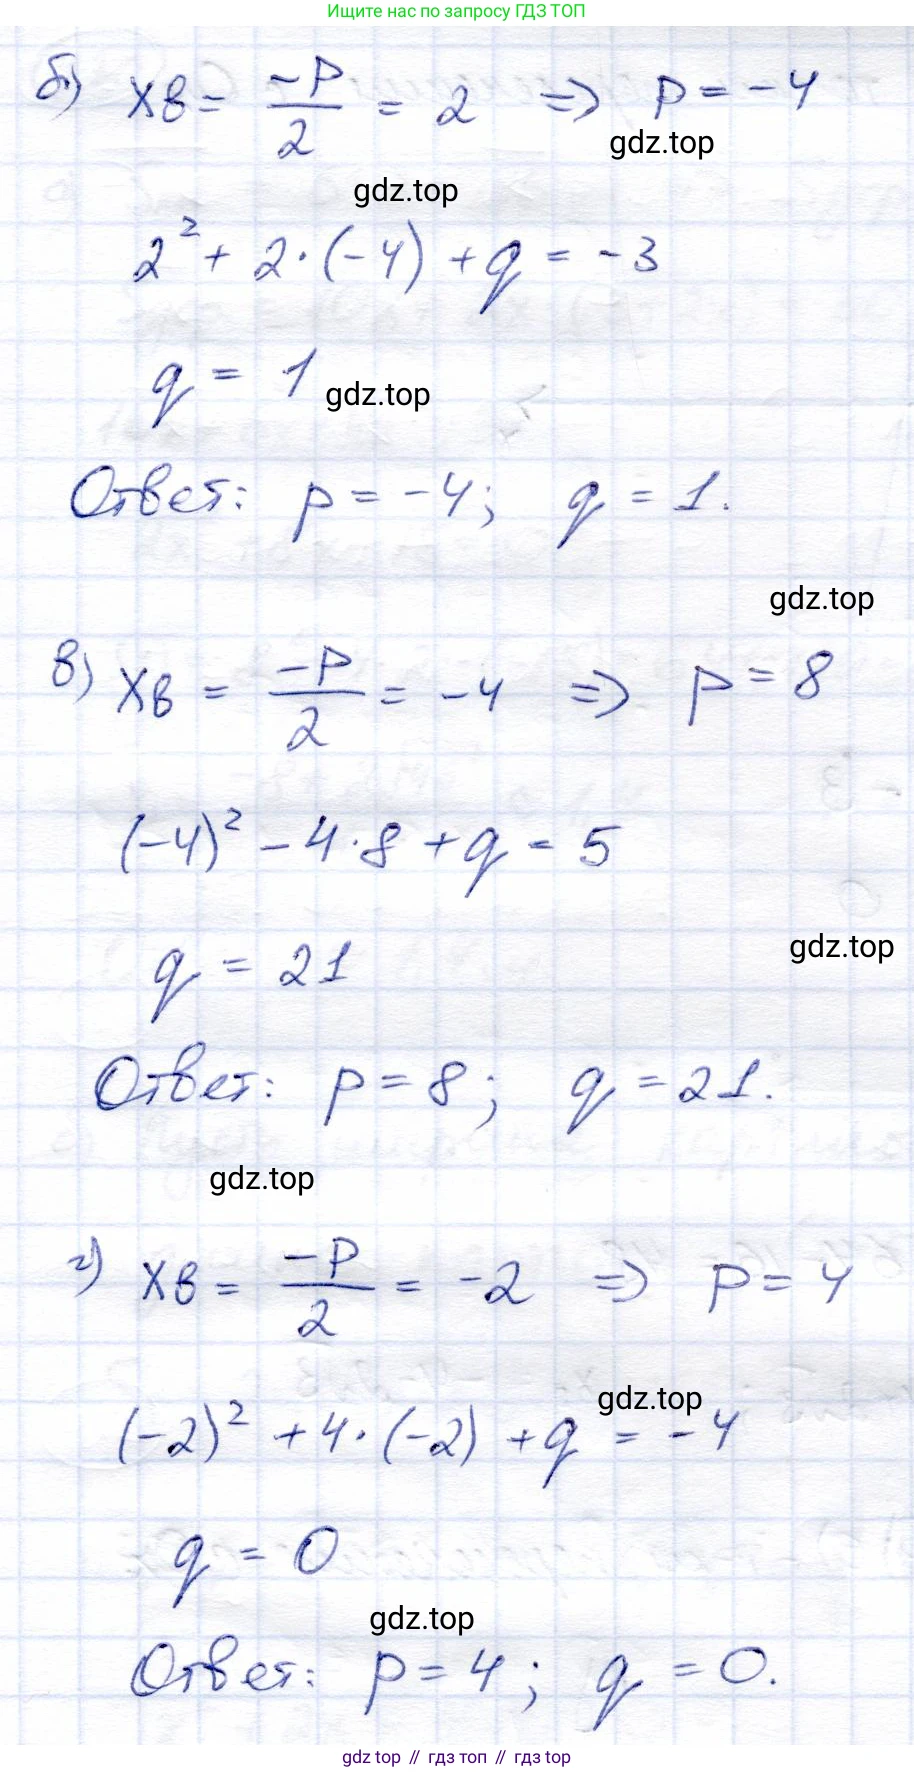 Ищите нас по запросу ГДЗ ТОП
б) xв = -p/2 = 2 => p = -4
gdz.top
gdz.top
2² + 2·(-4) + q = -3
q = 1
gdz.top
Ответ: p = -4; q = 1.
gdz.top
в) xв = -p/2 = -4 => p = 8
(-4)² - 4·8 + q = 5
gdz.top
q = 21
Ответ: p = 8; q = 21.
gdz.top
г) xв = -p/2 = -2 => p = 4
gdz.top
(-2)² + 4·(-2) + q = -4
q = 0
gdz.top
Ответ: p = 4; q = 0.
gdz top // гдз топ // гдз top